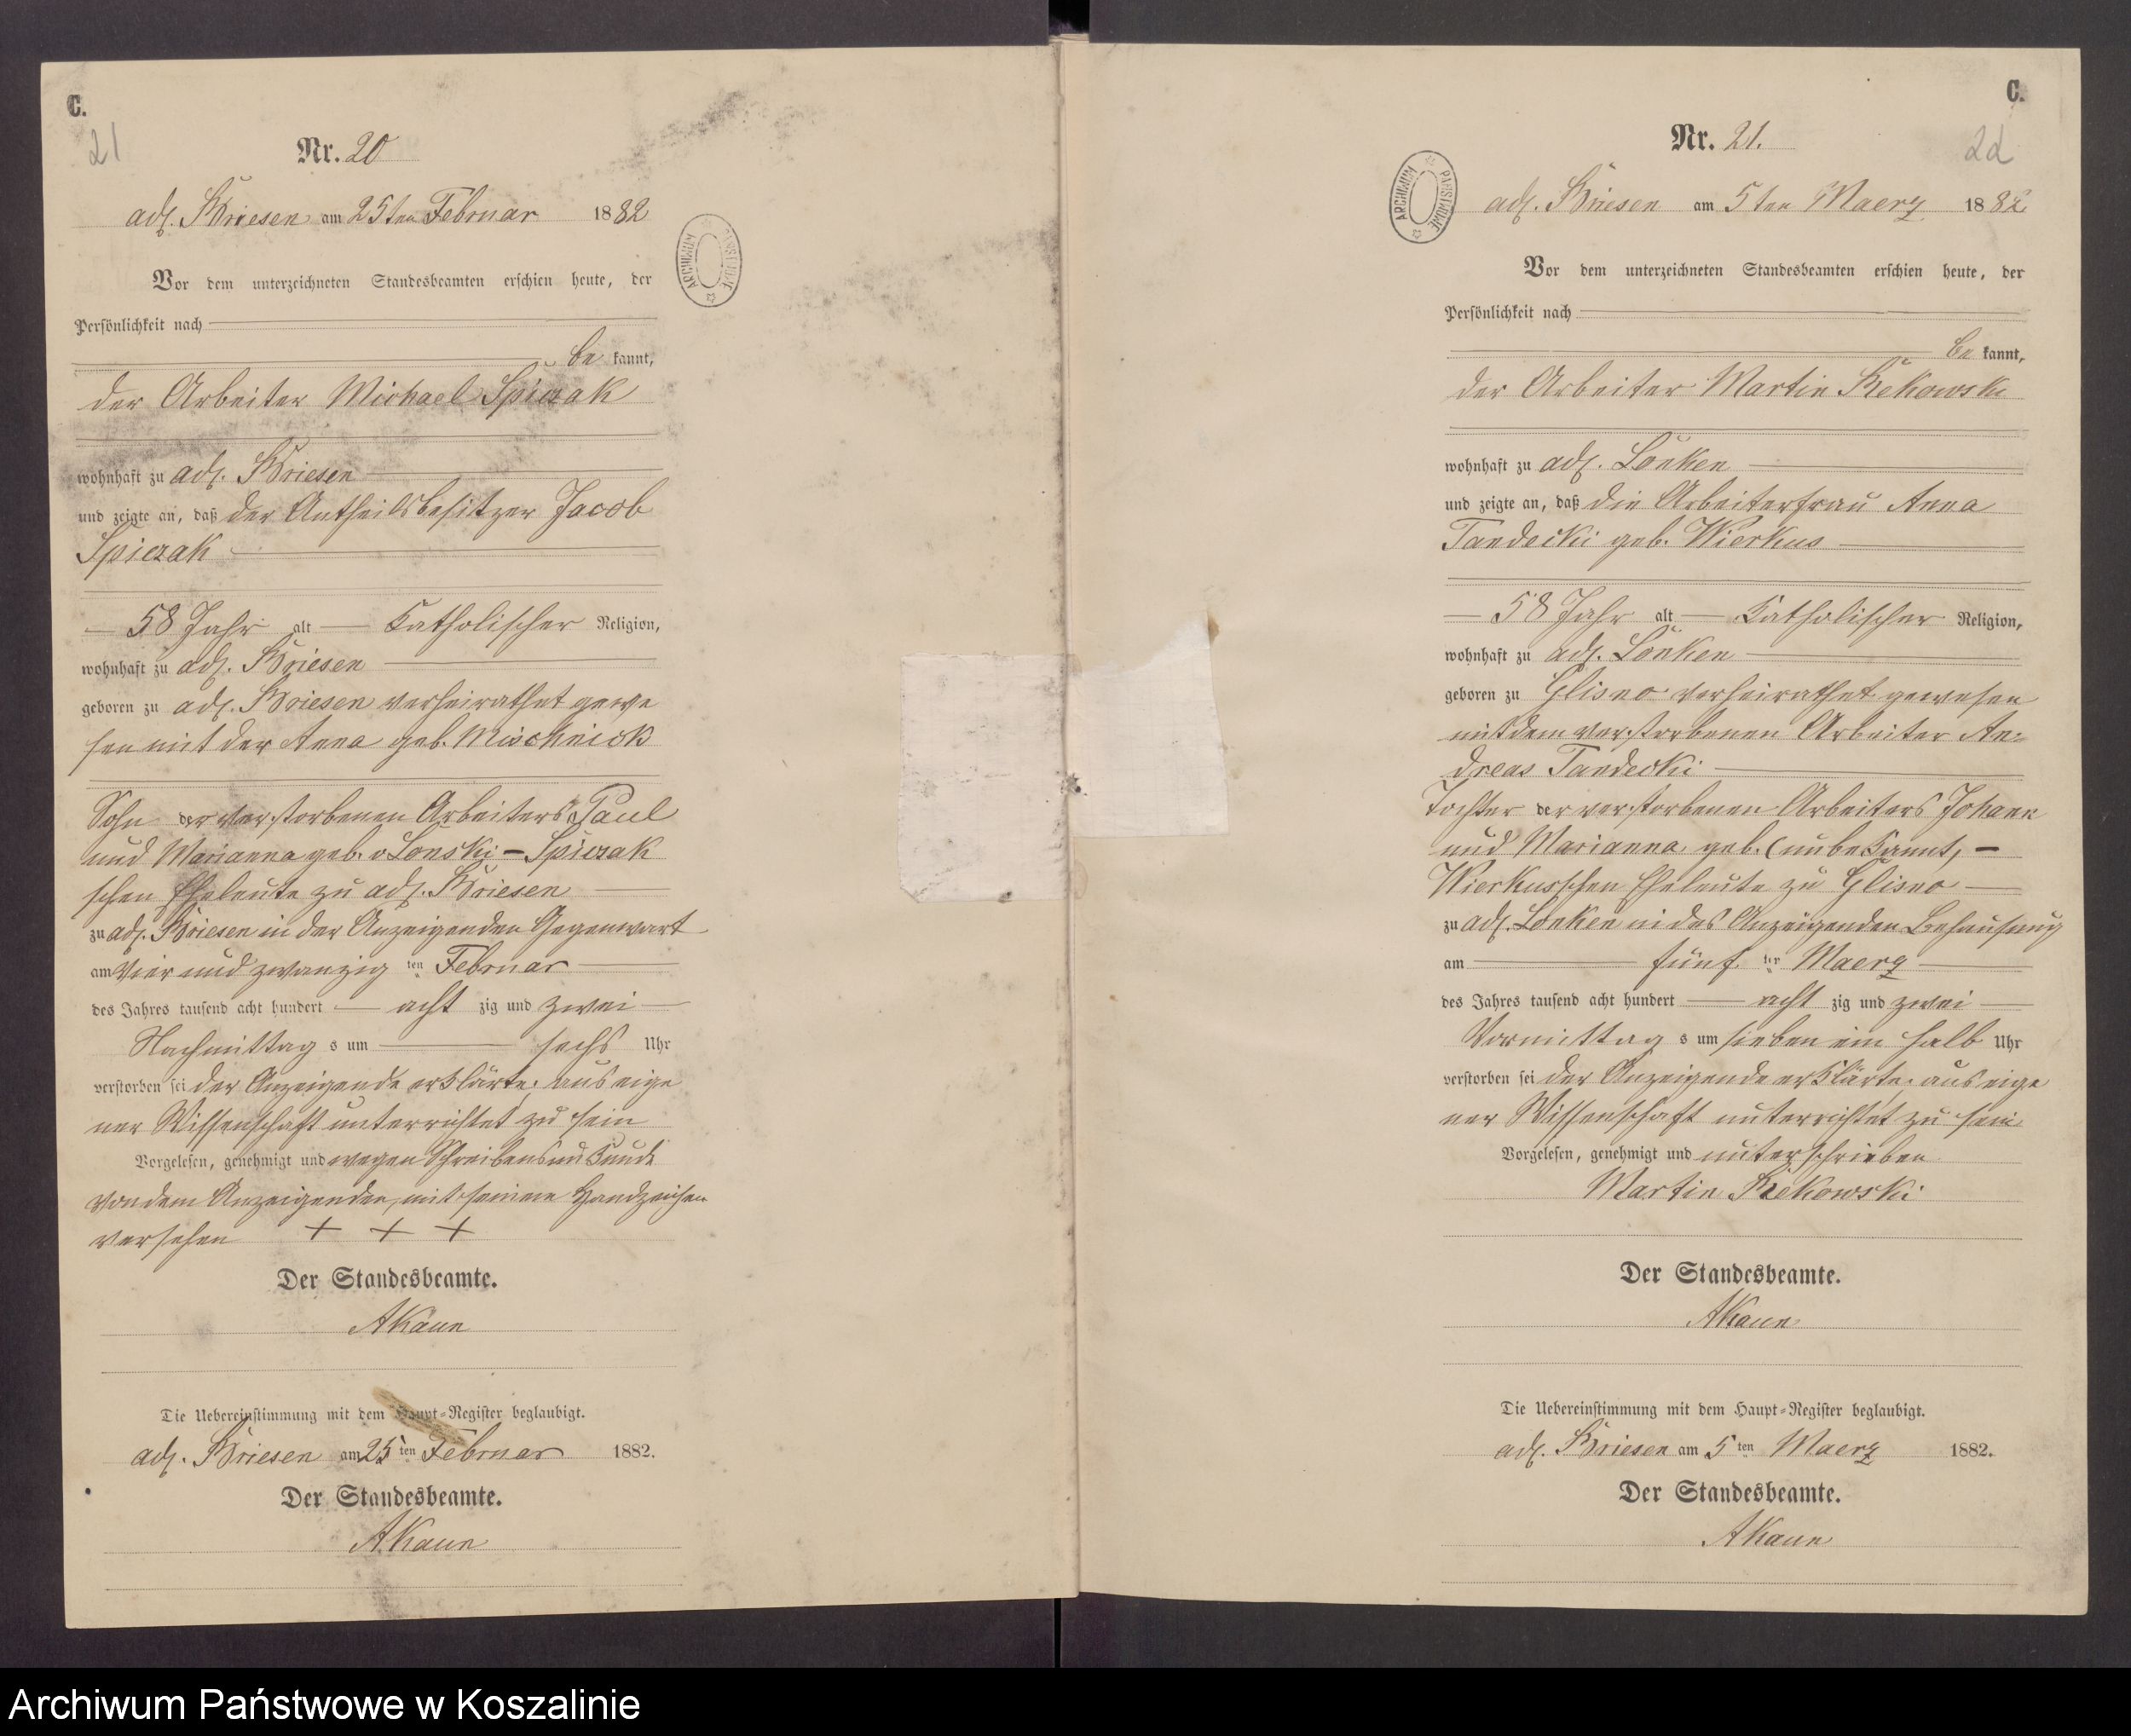 C.
21
Nr. 20
adl. Briesen am 25ten Februar 1882
ARCHIWUM PAŃSTWOWE
Vor dem unterzeichneten Standesbeamten erschien heute, der
Persönlichkeit nach
be kannt,
der Arbeiter Michael Spiczak
wohnhaft zu adl. Briesen
und zeigte an, daß der Antheilsbesitzer Jacob
Spiczak
58 Jahr alt Katholischer Religion,
wohnhaft zu adl. Briesen
geboren zu adl. Briesen verheirathet gewe
sen mit der Anna geb. Mischnick
Sohn der verstorbenen Arbeiters Paul
und Marianna geb. v Lonski - Spiczak
schen Eheleute zu adl. Briesen
zu adl. Briesen in der Anzeigenden Gegenwart
am vier und zwanzig ten Februar
des Jahres tausend acht hundert acht zig und zwei
Nachmittag s um sechs Uhr
verstorben sei der Anzeigende erklärte, aus eige
ner Wissenschaft unterrichtet zu sein
Vorgelesen, genehmigt und wegen Schreibensunkunde
von dem Anzeigenden, mit seinem Handzeichen
versehen + + +
Der Standesbeamte.
AKaun
Die Uebereinstimmung mit dem Haupt-Register beglaubigt.
adl. Briesen am 25 ten Februar 1882.
Der Standesbeamte.
AKaun
C.
22
Nr. 21.
ARCHIWUM PAŃSTWOWE
adl. Briesen am 5ten Maerz 1882
Vor dem unterzeichneten Standesbeamten erschien heute, der
Persönlichkeit nach
be kannt,
der Arbeiter Martin Rekowski
wohnhaft zu adl. Lonken
und zeigte an, daß die Arbeiterfrau Anna
Tandecki geb. Wierkus
58 Jahr alt Katholischer Religion,
wohnhaft zu adl. Lonken
geboren zu Glisno verheirathet gewesen
mit dem verstorbenen Arbeiter An-
dreas Tandecki
Tochter der verstorbenen Arbeiters Johann
und Marianna geb. (unbekannt, -
Wierkusschen Eheleute zu Glisno
zu adl. Lonken in des Anzeigenden Behausung
am fünf ten Maerz
des Jahres tausend acht hundert acht zig und zwei
Vormittag s um sieben ein halb Uhr
verstorben sei der Anzeigende erklärte, aus eige
ner Wissenschaft unterrichtet zu sein
Vorgelesen, genehmigt und unterschrieben
Martin Rekowski
Der Standesbeamte.
AKaun
Die Uebereinstimmung mit dem Haupt-Register beglaubigt.
adl. Briesen am 5 ten Maerz 1882.
Der Standesbeamte.
AKaun
Archiwum Państwowe w Koszalinie